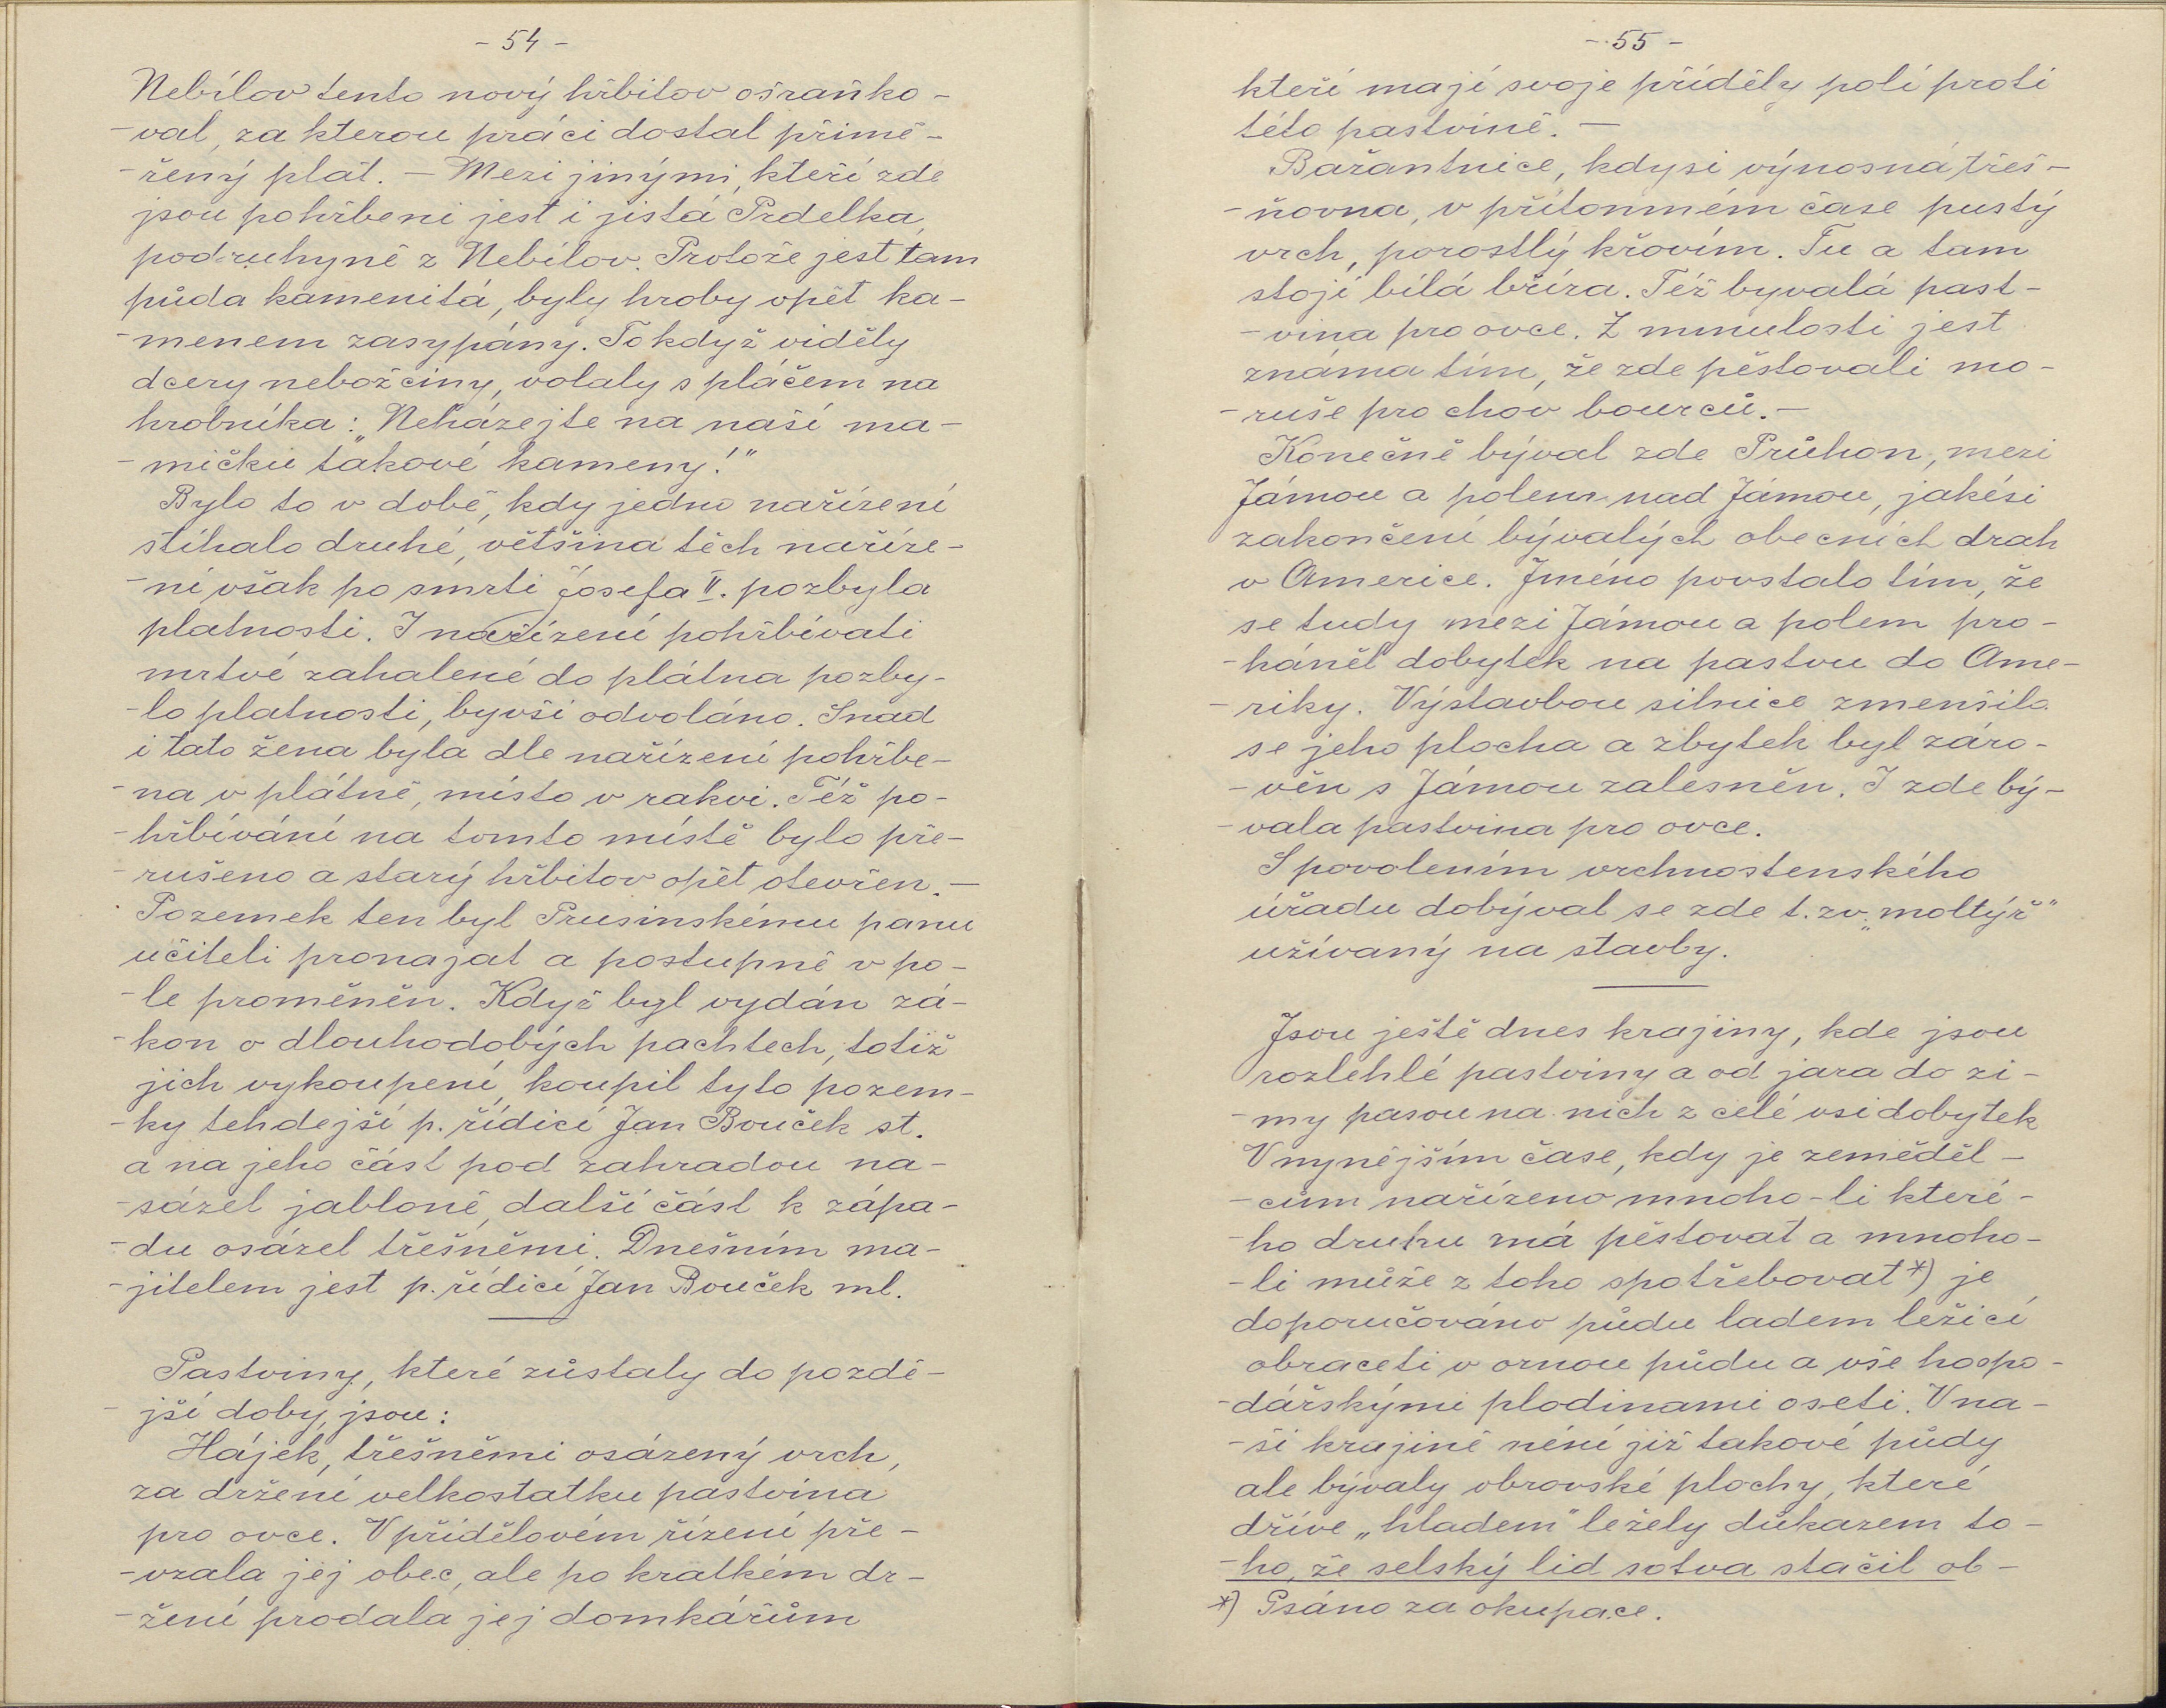 - 54 -
Nebílov tento nový hřbitov ošraňko-
-val, za kterou práci dostal přimě-
-řený plat. - Mezi jinými, kteří zde
jsou pohřbeni jest i jistá Prdelka,
podruhyně z Nebílov. Protože jest tam
půda kamenitá, byly hroby opět ka-
-menem zasypány. To když viděly
dcery nebožčiny, volaly s pláčem na
hrobníka: „Neházejte na naší ma-
-mičku takové kameny!"
Bylo to v době, kdy jedno nařízení
stíhalo druhé, většina těch naříze-
-ní však po smrti Josefa II. pozbyla
platnosti. I nařízení pohřbívati
mrtvé zahalené do plátna pozby-
-lo platnosti, byvší odvoláno. Snad
i tato žena byla dle nařízení pohřbe-
-na v plátně, místo v rakvi. Též po-
-hřbívání na tomto místě bylo pře-
-rušeno a starý hřbitov opět otevřen. -
Pozemek ten byl Prusinskému panu
učiteli pronajat a postupně v po-
-le proměněn. Když byl vydán zá-
-kon o dlouhodobých pachtech, totiž
jich vykoupení, koupil tyto pozem-
-ky tehdejší p. řídicí Jan Bouček st.
a na jeho část pod zahradou na-
-sázel jabloně, další část k zápa-
-du osázel třešněmi. Dnešním ma-
-jitelem jest p. řídicí Jan Bouček ml.
Pastviny, které zůstaly do pozdě-
-jší doby, jsou:
Hájek, třešněmi osázený vrch,
za držení velkostatku pastvina
pro ovce. V přídělovém řízení pře-
-vzala jej obec, ale po kratkém dr-
-žení prodala jej domkářům
- 55 -
kteří mají svoje příděly polí proti
této pastvině. -
Bařantnice, kdysi výnosná třeš-
-ňovna, v přítomném čase pustý
vrch, porostlý křovím. Tu a tam
stojí bílá bříza. Též byvalá past-
-vina pro ovce. Z minulosti jest
známa tím, že zde pěstovali mo-
-ruše pro chov bourců. -
Konečně býval zde Průhon, mezi
Jámou a polem nad Jámou, jakési
zakončení bývalých obecních drah
v Americe. Jméno povstalo tím, že
se tudy mezi Jámou a polem pro-
-háněl dobytek na pastvu do Ame-
-riky. Výstavbou silnice zmenšila
se jeho plocha a zbytek byl záro-
-věn s Jámou zalesněn. I zde bý-
-vala pastvina pro ovce.
S povolením vrchnostenského
úřadu dobýval se zde t. zv. „moltýř"
užívaný na stavby.
Jsou ještě dnes krajiny, kde jsou
rozlehlé pastviny a od jara do zi-
-my pasou na nich z celé vsi dobytek
V nynějším čase, kdy je zeměděl-
-cům nařízeno mnoho-li které-
-ho druhu má pěstovat a mnoho-
-li může z toho spotřebovat*) je
doporučováno půdu ladem ležící
obraceti v ornou půdu a vše hospo-
-dářskými plodinami oseti. V na-
-ší krajině není již takové půdy
ale bývaly obrovské plochy, které
dříve „hladem" ležely důkazem to-
-ho, že selský lid sotva stačil ob-
*) Psáno za okupace.